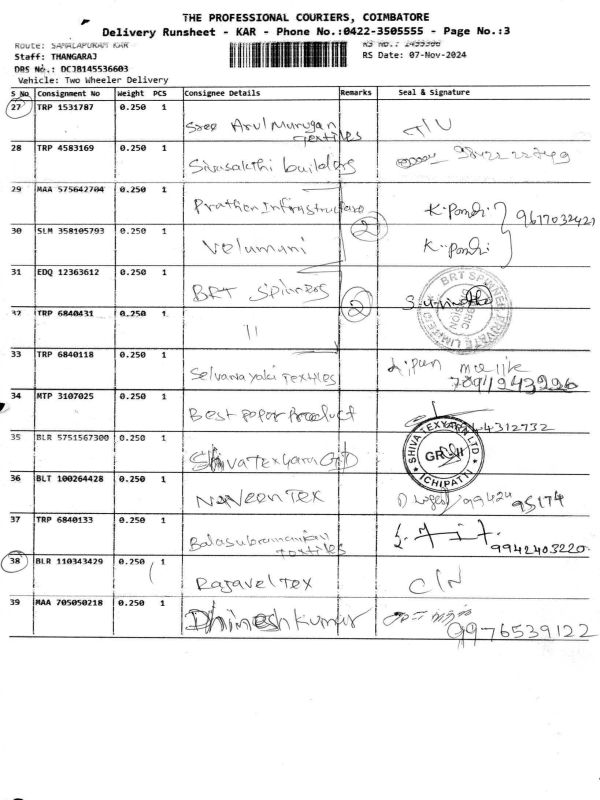 THE PROFESSIONAL COURIERS, COIMBATORE
Delivery Runsheet - KAR - Phone No.:0422-3505555 - Page No.:3
Route: SAMALAPURAM KAR
Staff: THANGARAJ
RS Date: 07-Nov-2024
DRS No.: DCJB145536603
Vehicle: Two Wheeler Delivery
S No Consignment No Weight PCS Consignee Details Remarks Seal & Signature
27 TRP 1531787 0.250 1 Sree Arul Murugan Textiles
28 TRP 4583169 0.250 1 Sivasakthi builders
29 MAA 575642704 0.250 1 Prathen Infrastructure K. Pondi
30 SLM 358105793 0.250 1 Velumani 2 K. Pondi
31 EDQ 12363612 0.250 1 BRT Spinners
32 TRP 6840431 0.250 1 11 2
33 TRP 6840118 0.250 1 Selvanayaki Textiles
34 MTP 3107025 0.250 1 Best paper Product
35 BLR 5751567300 0.250 1 Shiva Texyarn SHIVA TEXYARN LTD ICHIPATTI
36 BLT 100264428 0.250 1 Naveen Tex 99424 95174
37 TRP 6840133 0.250 1 Balasubramaniam Textiles 9942403220
38 BLR 110343429 0.250 1 Rajavel Tex
39 MAA 705050218 0.250 1 Dhineshkumar 9976539122